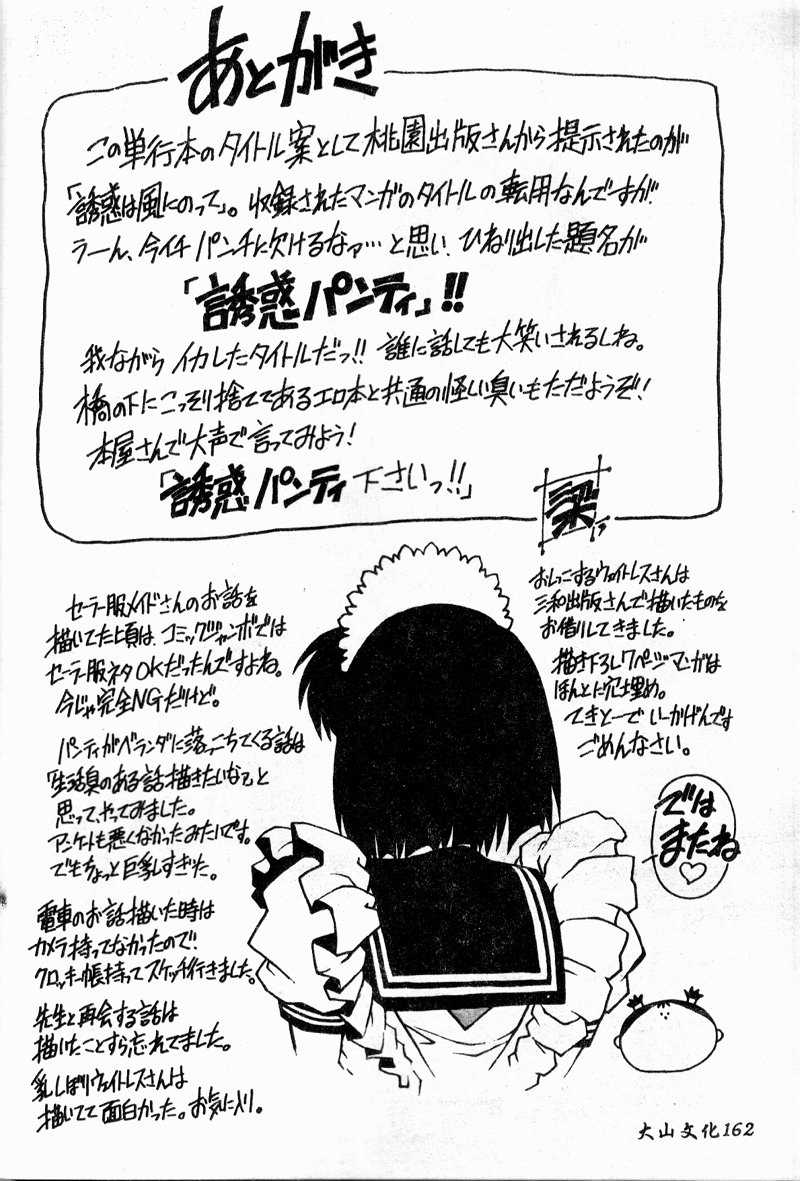 あとがき
この単行本のタイトル案として桃園出版さんから提示されたのが
「誘惑は風にのって」。収録されたマンガのタイトルの転用なんですが
うーん、今イチパンチに欠けるなァ…と思い、ひねり出した題名が
「誘惑パンティ」!!
我ながらイカしたタイトルだっ!!誰に話しても大笑いされるしね。
橋の下にこっそり捨ててあるエロ本と共通の怪しい臭いもただようぞ!
本屋さんで大声で言ってみよう!
「誘惑パンティ下さいっ!!」
おしっこするウェイトレスさんは
三和出版さんで描いたものを
お借りしてきました。
描き下ろし7ページマンガは
ほんとに穴埋め。
てきとーでいーかげんです
ごめんなさい。
セーラー服メイドさんのお話を
描いてた頃は、コミックジャンボでは
セーラー服ネタOKだったんですよね。
今じゃ完全NGだけど。
パンティがベランダに落っこちてくる話は
「生活臭のある話描きたいな」と
思って、やってみました。
アンケートも悪くなかったみたいです。
でもちょっと巨乳すぎた。
電車のお話描いた時は
カメラ持ってなかったので
クロッキー帳持ってスケッチ行きました。
先生と再会する話は
描いたことすら忘れてました。
乳しぼりウェイトレスさんは
描いてて面白かった。お気に入り。
では
またね
♡
大山文化162